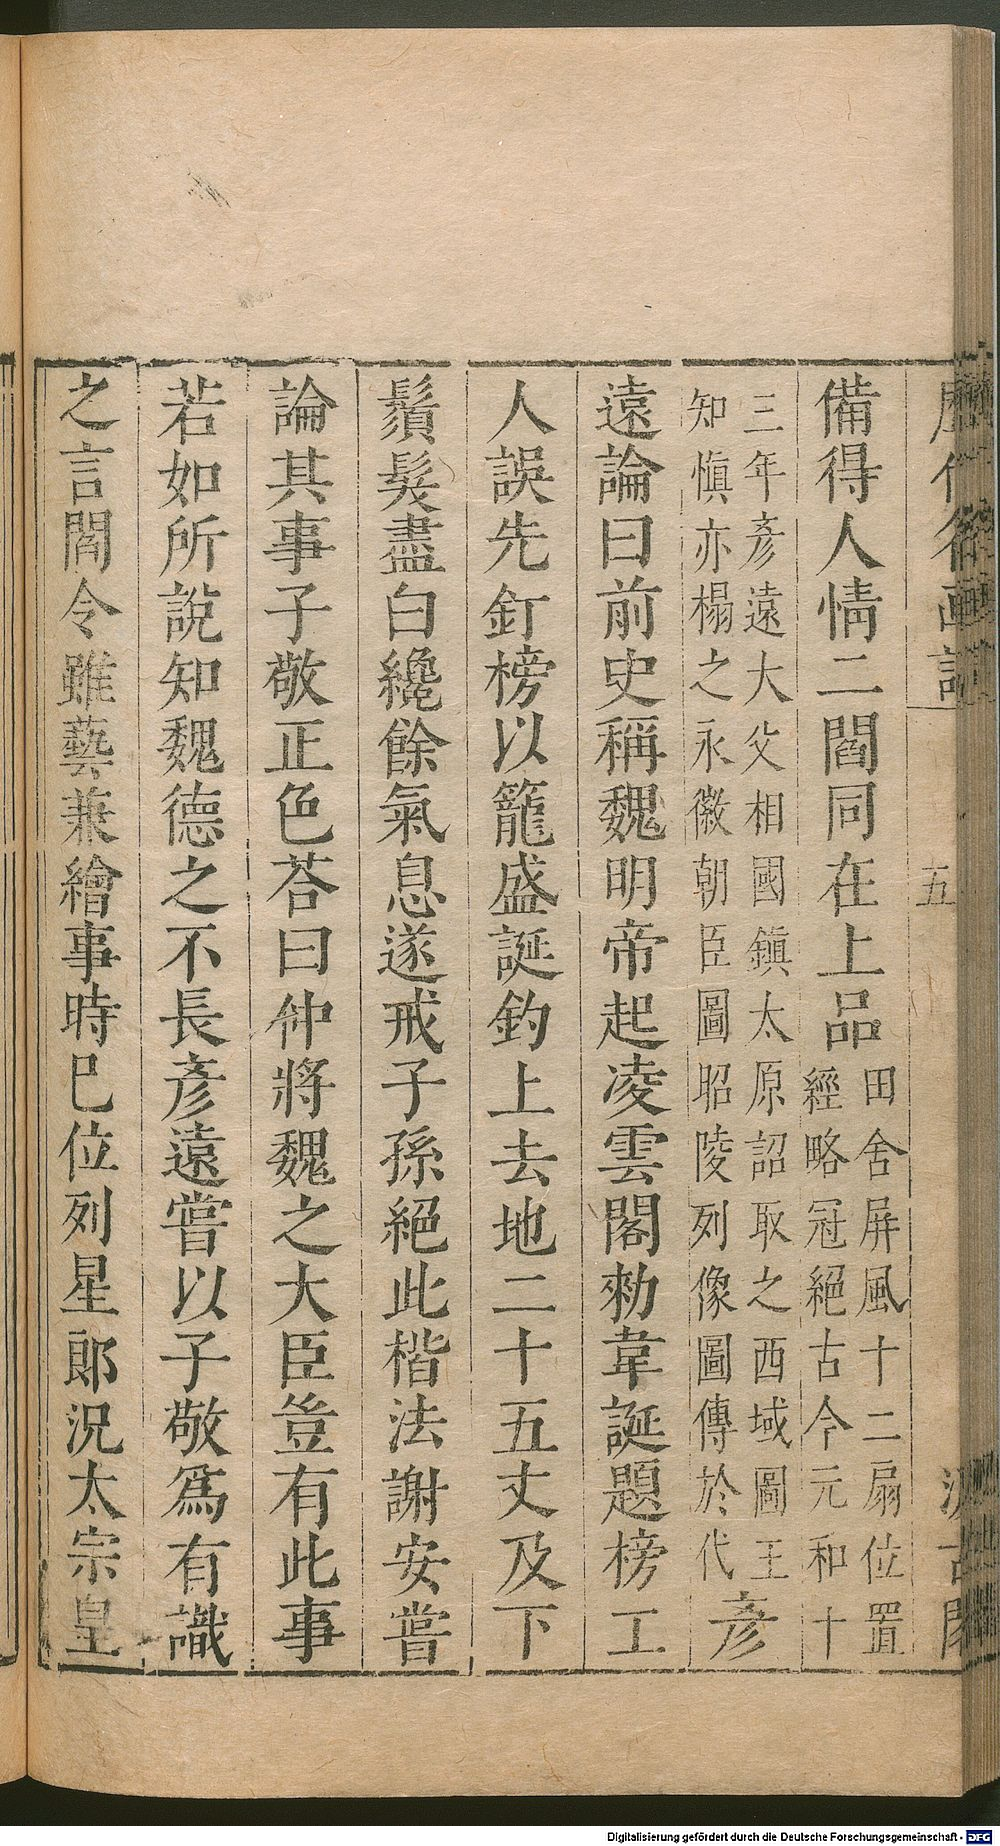 歷代名画記
五
備得人情二閻同在上品田舍屏風十二扇位置
經略冠絕古今元和十
三年彥遠大父相國鎮太原詔取之西域圖王
知慎亦榻之永徽朝臣圖昭陵列像圖傳於代彥
遠論曰前史稱魏明帝起凌雲閣勑韋誕題榜工
人誤先釘榜以籠盛誕釣上去地二十五丈及下
鬚髮盡白纔餘氣息遂戒子孫絕此楷法謝安嘗
論其事子敬正色荅曰仲將魏之大臣豈有此事
若如所說知魏德之不長彥遠嘗以子敬爲有識
之言閻令雖藝兼繪事時巳位列星郎況太宗皇
Digitalisierung gefördert durch die Deutsche Forschungsgemeinschaft - DFG